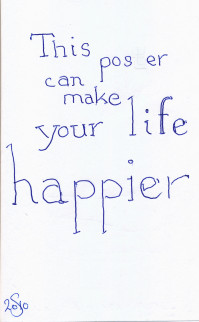 This pos er
can
make
your life
happier